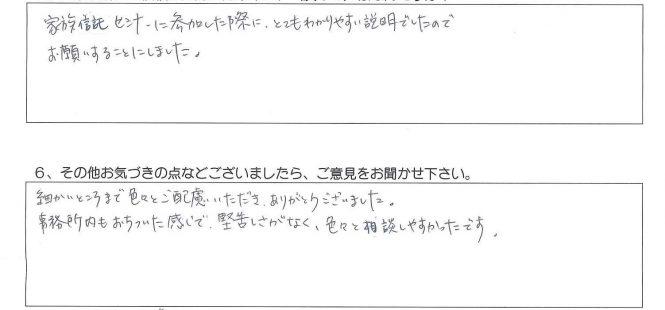 家族信託セミナーに参加した際に、とてもわかりやすい説明でしたので
お願いすることにしました。
6、その他お気づきの点などございましたら、ご意見をお聞かせ下さい。
細かいところまで色々とご配慮いただき、ありがとうございました。
事務所内もおちついた感じで、堅苦しさがなく、色々と相談しやすかったです。